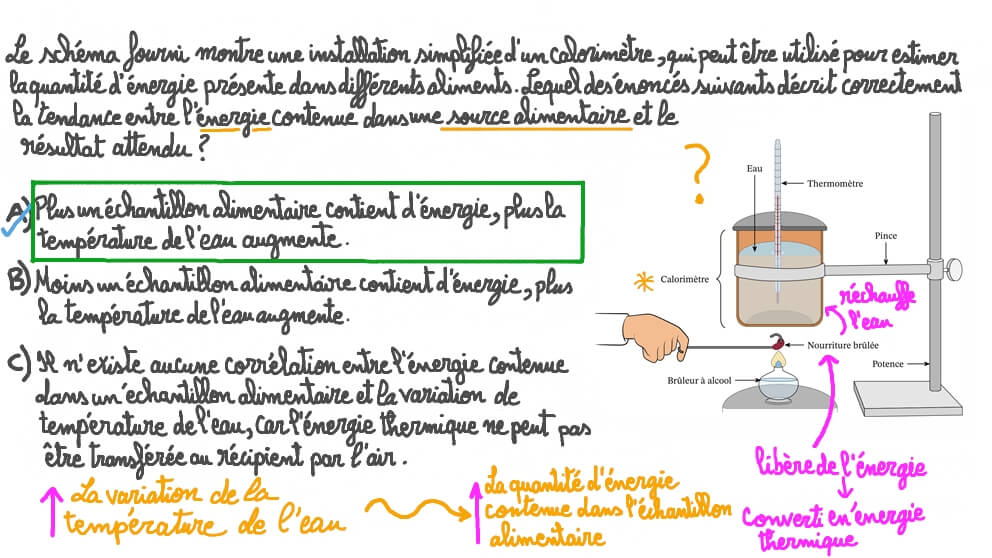 Le schéma fourni montre une installation simplifiée d'un calorimètre, qui peut être utilisé pour estimer
la quantité d'énergie présente dans différents aliments. Lequel des énoncés suivants décrit correctement
la tendance entre l'énergie contenue dans une source alimentaire et le
résultat attendu ?
?
A) Plus un échantillon alimentaire contient d'énergie, plus la
température de l'eau augmente.
B) Moins un échantillon alimentaire contient d'énergie, plus
la température de l'eau augmente.
C) Il n'existe aucune corrélation entre l'énergie contenue
dans un échantillon alimentaire et la variation de
température de l'eau, car l'énergie thermique ne peut pas
être transférée au récipient par l'air.
Eau
Thermomètre
Pince
Calorimètre
réchauffe
l'eau
Nourriture brûlée
Potence
Brûleur à alcool
libère de l'énergie
Converti en énergie
thermique
La variation de la
température de l'eau
La quantité d'énergie
contenue dans l'échantillon
alimentaire